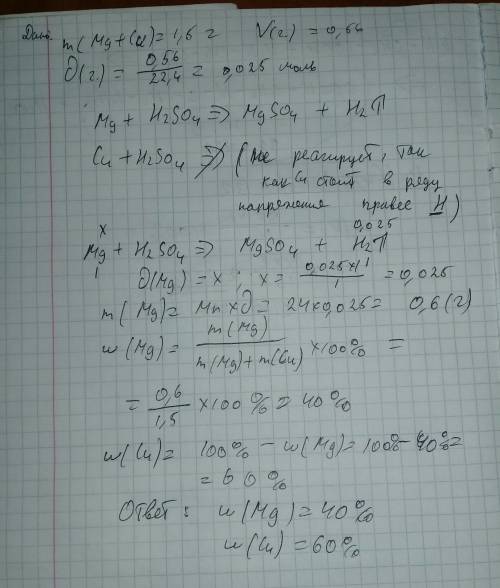 Дано:
m(Mg+Cu)=1,5 г V(г)=0,56
∂(г)= 0,56/22,4 = 0,025 моль
Mg + H2SO4 => MgSO4 + H2↑
Cu + H2SO4 ≠> (не реагирует, так
как Cu стоит в ряду
напряжения правее H)
x 0,025
Mg + H2SO4 => MgSO4 + H2↑
1 1
∂(Mg) = x ; x = 0,025×1/1 = 0,025
m(Mg)= Mr×∂ = 24×0,025= 0,6(г)
w(Mg)= m(Mg)/m(Mg)+m(Cu) ×100% =
= 0,6/1,5 ×100%= 40%
w(Cu)= 100% - w(Mg)=100%-40%=
= 60%
Ответ: w(Mg)=40%
w(Cu)=60%